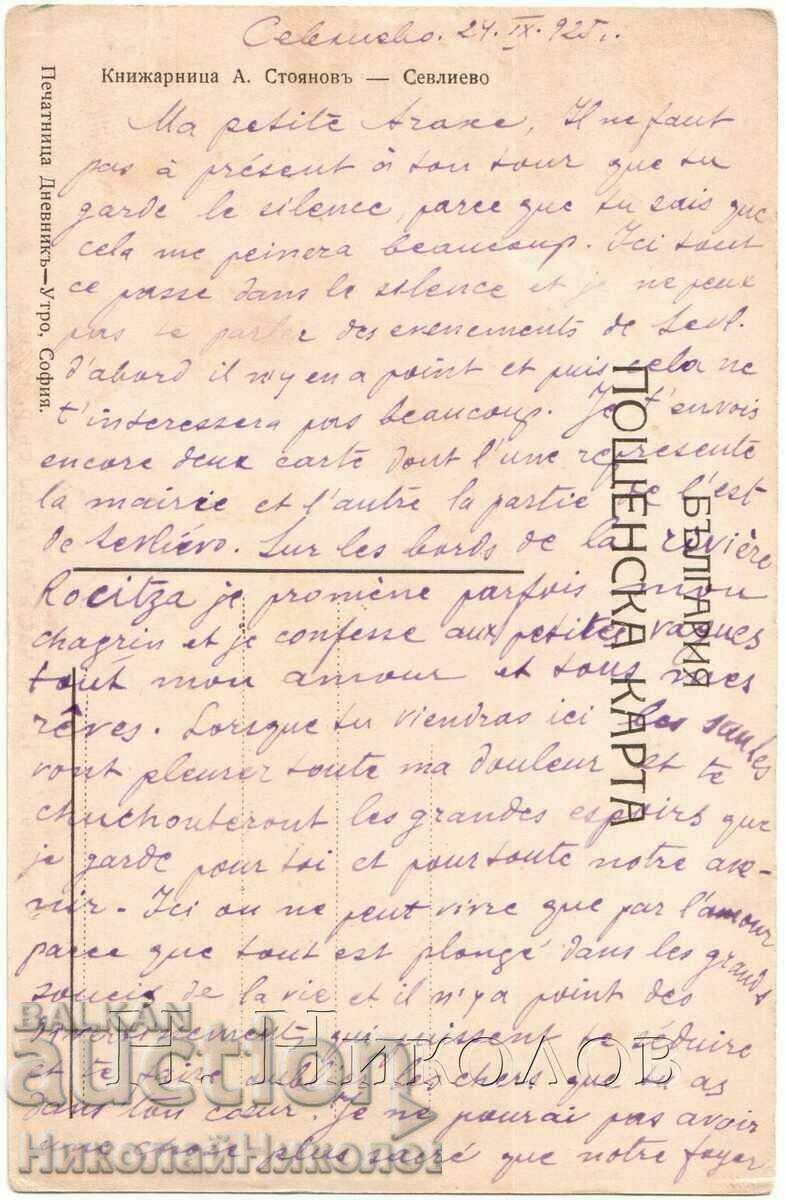 Севлиево. 24 IX. 925 г.
Книжарница А. Стояновъ — Севлиево
Печатница Дневникъ—Утро, София.
Ma petite Araxe, Il ne faut
pas à présent à ton tour que tu
garde le silence, parce que tu sais que
cela me peinera beaucoup. Ici tout
ce passe dans le silence et je ne peux
pas te parler des evenements de Sevl.
d'abord il n'y en a point et puis cela ne
t'interessera pas beaucoup. Je t'envois
encore deux carte dont l'une represente
la mairie et l'autre la partie de l'est
de Sevliévo. Sur les bords de la rivière
Rocitza je promène parfois mon
chagrin et je confesse aux petites vagues
tout mon amour et tous mes
rêves. Lorsque tu viendras ici les saules
vont pleurer toute ma douleur et te
chuchouteront les grandes espoirs que
je garde pour toi et pour toute notre ave-
nir. Ici on ne peut vivre que par l'amour
parce que tout est plongé dans les grands
soucis de la vie et il n'y a point des
divertissements qui puissent te séduire
et te faire oublier les chers que tu as
dans ton cœur. Je ne pourai pas avoir
une chose plus sacré que notre foyer
БЪЛГАРИЯ
ПОЩЕНСКА КАРТА
BALKAN
auction
Н. НИКОЛОВ
НиколайНиколов